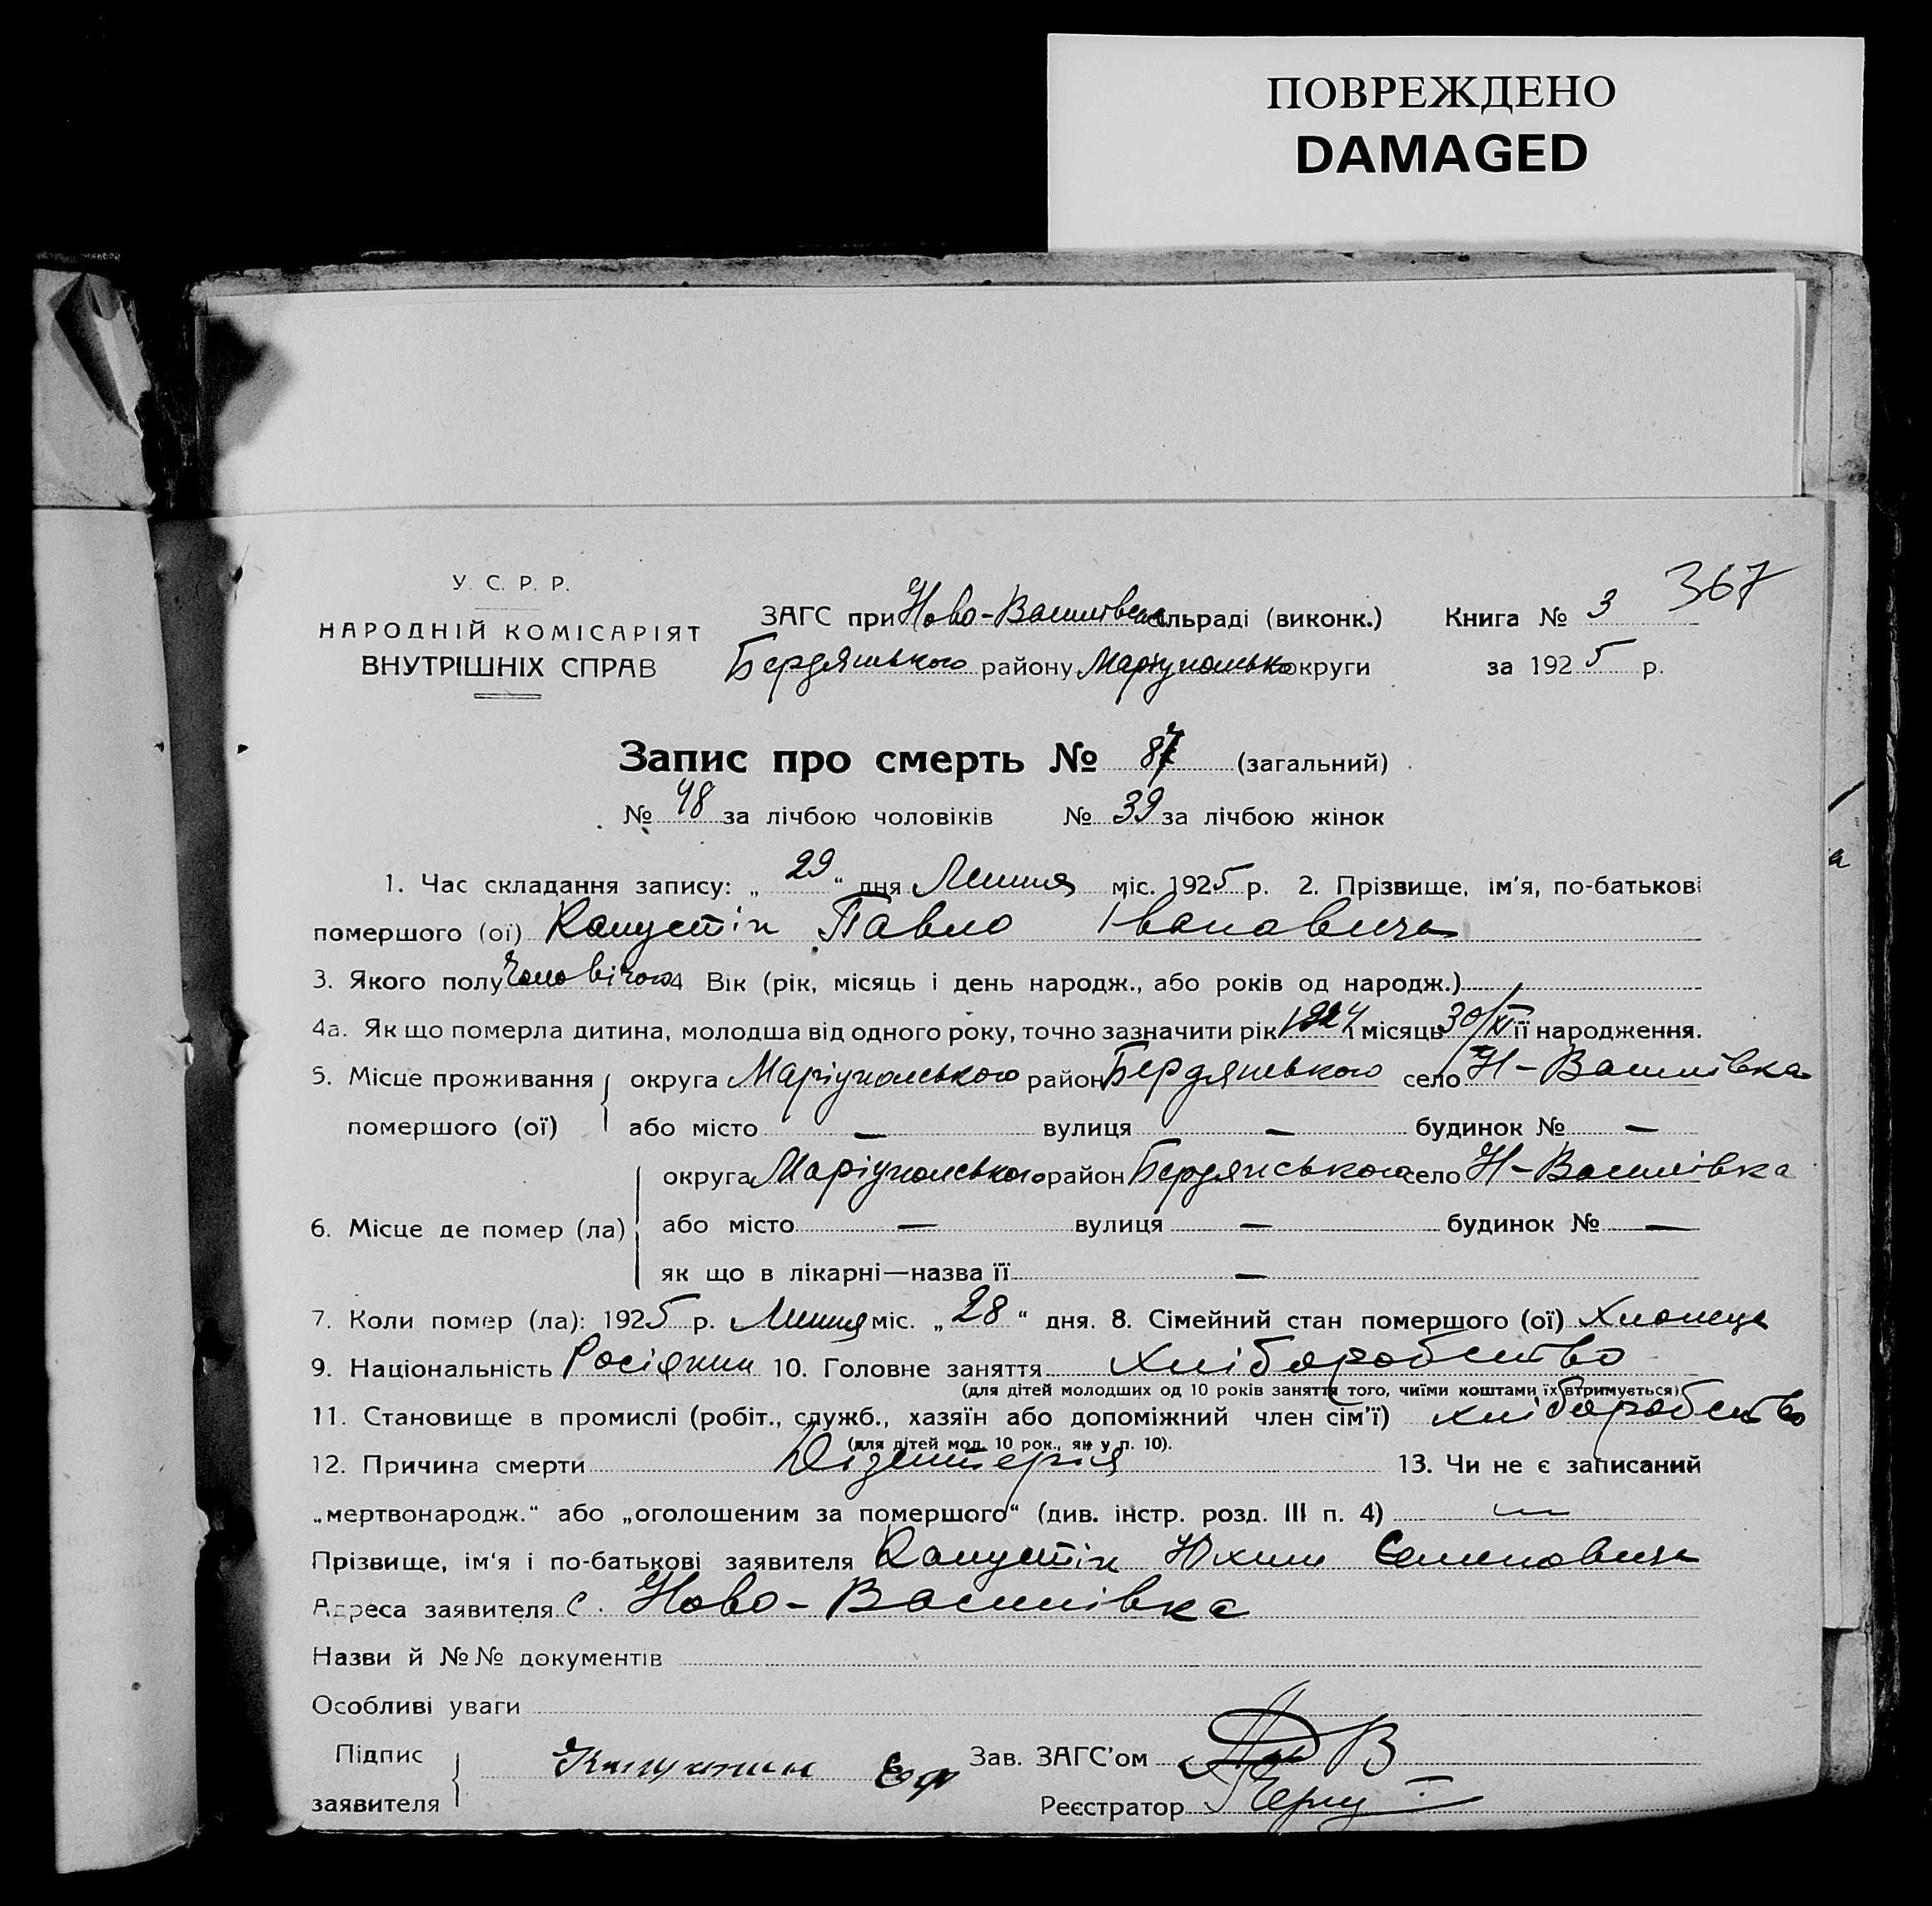 ПОВРЕЖДЕНО
DAMAGED
367
У. С. Р. Р.
НАРОДНІЙ КОМІСАРІЯТ
ВНУТРІШНІХ СПРАВ
ЗАГС при Ново-Василівськ сільраді (виконк.) Книга № 3
Бердянського району Маріупольсько округи за 1925 р.
Запис про смерть № 87 (загальний)
№ 48 за лічбою чоловіків № 39 за лічбою жінок
1. Час складання запису: „29“ дня Липня міс. 1925 р. 2. Прізвище, ім'я, по-батькові
помершого (ої) Капустін Павло Іванович
3. Якого полу Чоловічого 4 Вік (рік, місяць і день народж., або років од народж.)
4а. Як що померла дитина, молодша від одного року, точно зазначити рік 1924 місяць 30/XI її народження.
5. Місце проживання округа Маріупольського район Бердянського село Н-Василівка
помершого (ої) або місто — вулиця — будинок № —
округа Маріупольського район Бердянського село Н-Василівка
6. Місце де помер (ла) або місто — вулиця — будинок № —
як що в лікарні—назва її —
7. Коли помер (ла): 1925 р. Липня міс. „28“ дня. 8. Сімейний стан помершого (ої) Хлопець
9. Національність Росіянин 10. Головне заняття Хліборобство
(для дітей молодших од 10 років заняття того, чиїми коштами їх втримується)
11. Становище в промислі (робіт., служб., хазяїн або допоміжний член сім'ї) хліборобство
(для дітей мол. 10 рок., як у п. 10).
12. Причина смерти Дізентерія 13. Чи не є записаний
„мертвонародж.“ або „оголошеним за помершого“ (див. інстр. розд. III п. 4) —
Прізвище, ім'я і по-батькові заявителя Капустін Юхим Семенович
Адреса заявителя с. Ново-Василівка
Назви й №№ документів
Особливі уваги
Підпис заявителя Капустин Еф Зав. ЗАГС'ом
Реєстратор